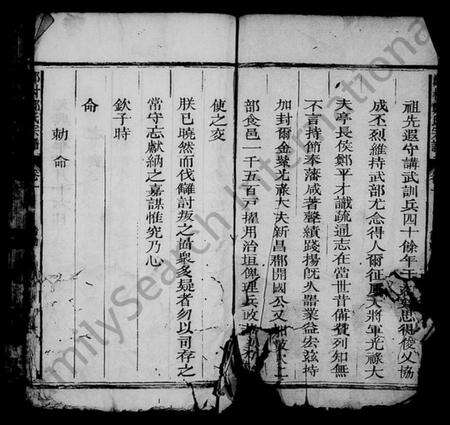 祖先遐守講武訓兵四十餘年王 思得俊乂協
成丕烈維持武部尤念得人爾征 大將軍光祿大
夫亭長侯鄭平才識疏通志在當世昔備覽列知無
不言持節奉藩咸著聲績踐揚旣久器業益宏茲特
加封爾金紫光祿大夫新昌郡開國公又
部食邑一千五百戶擢用治垣俾理兵政
使之交
朕已曉然而伐讎討叛之 眾多疑者勿以司存之
常守志獻納之嘉謀惟究乃心
欽子時
命
勅命
FamilySearch International